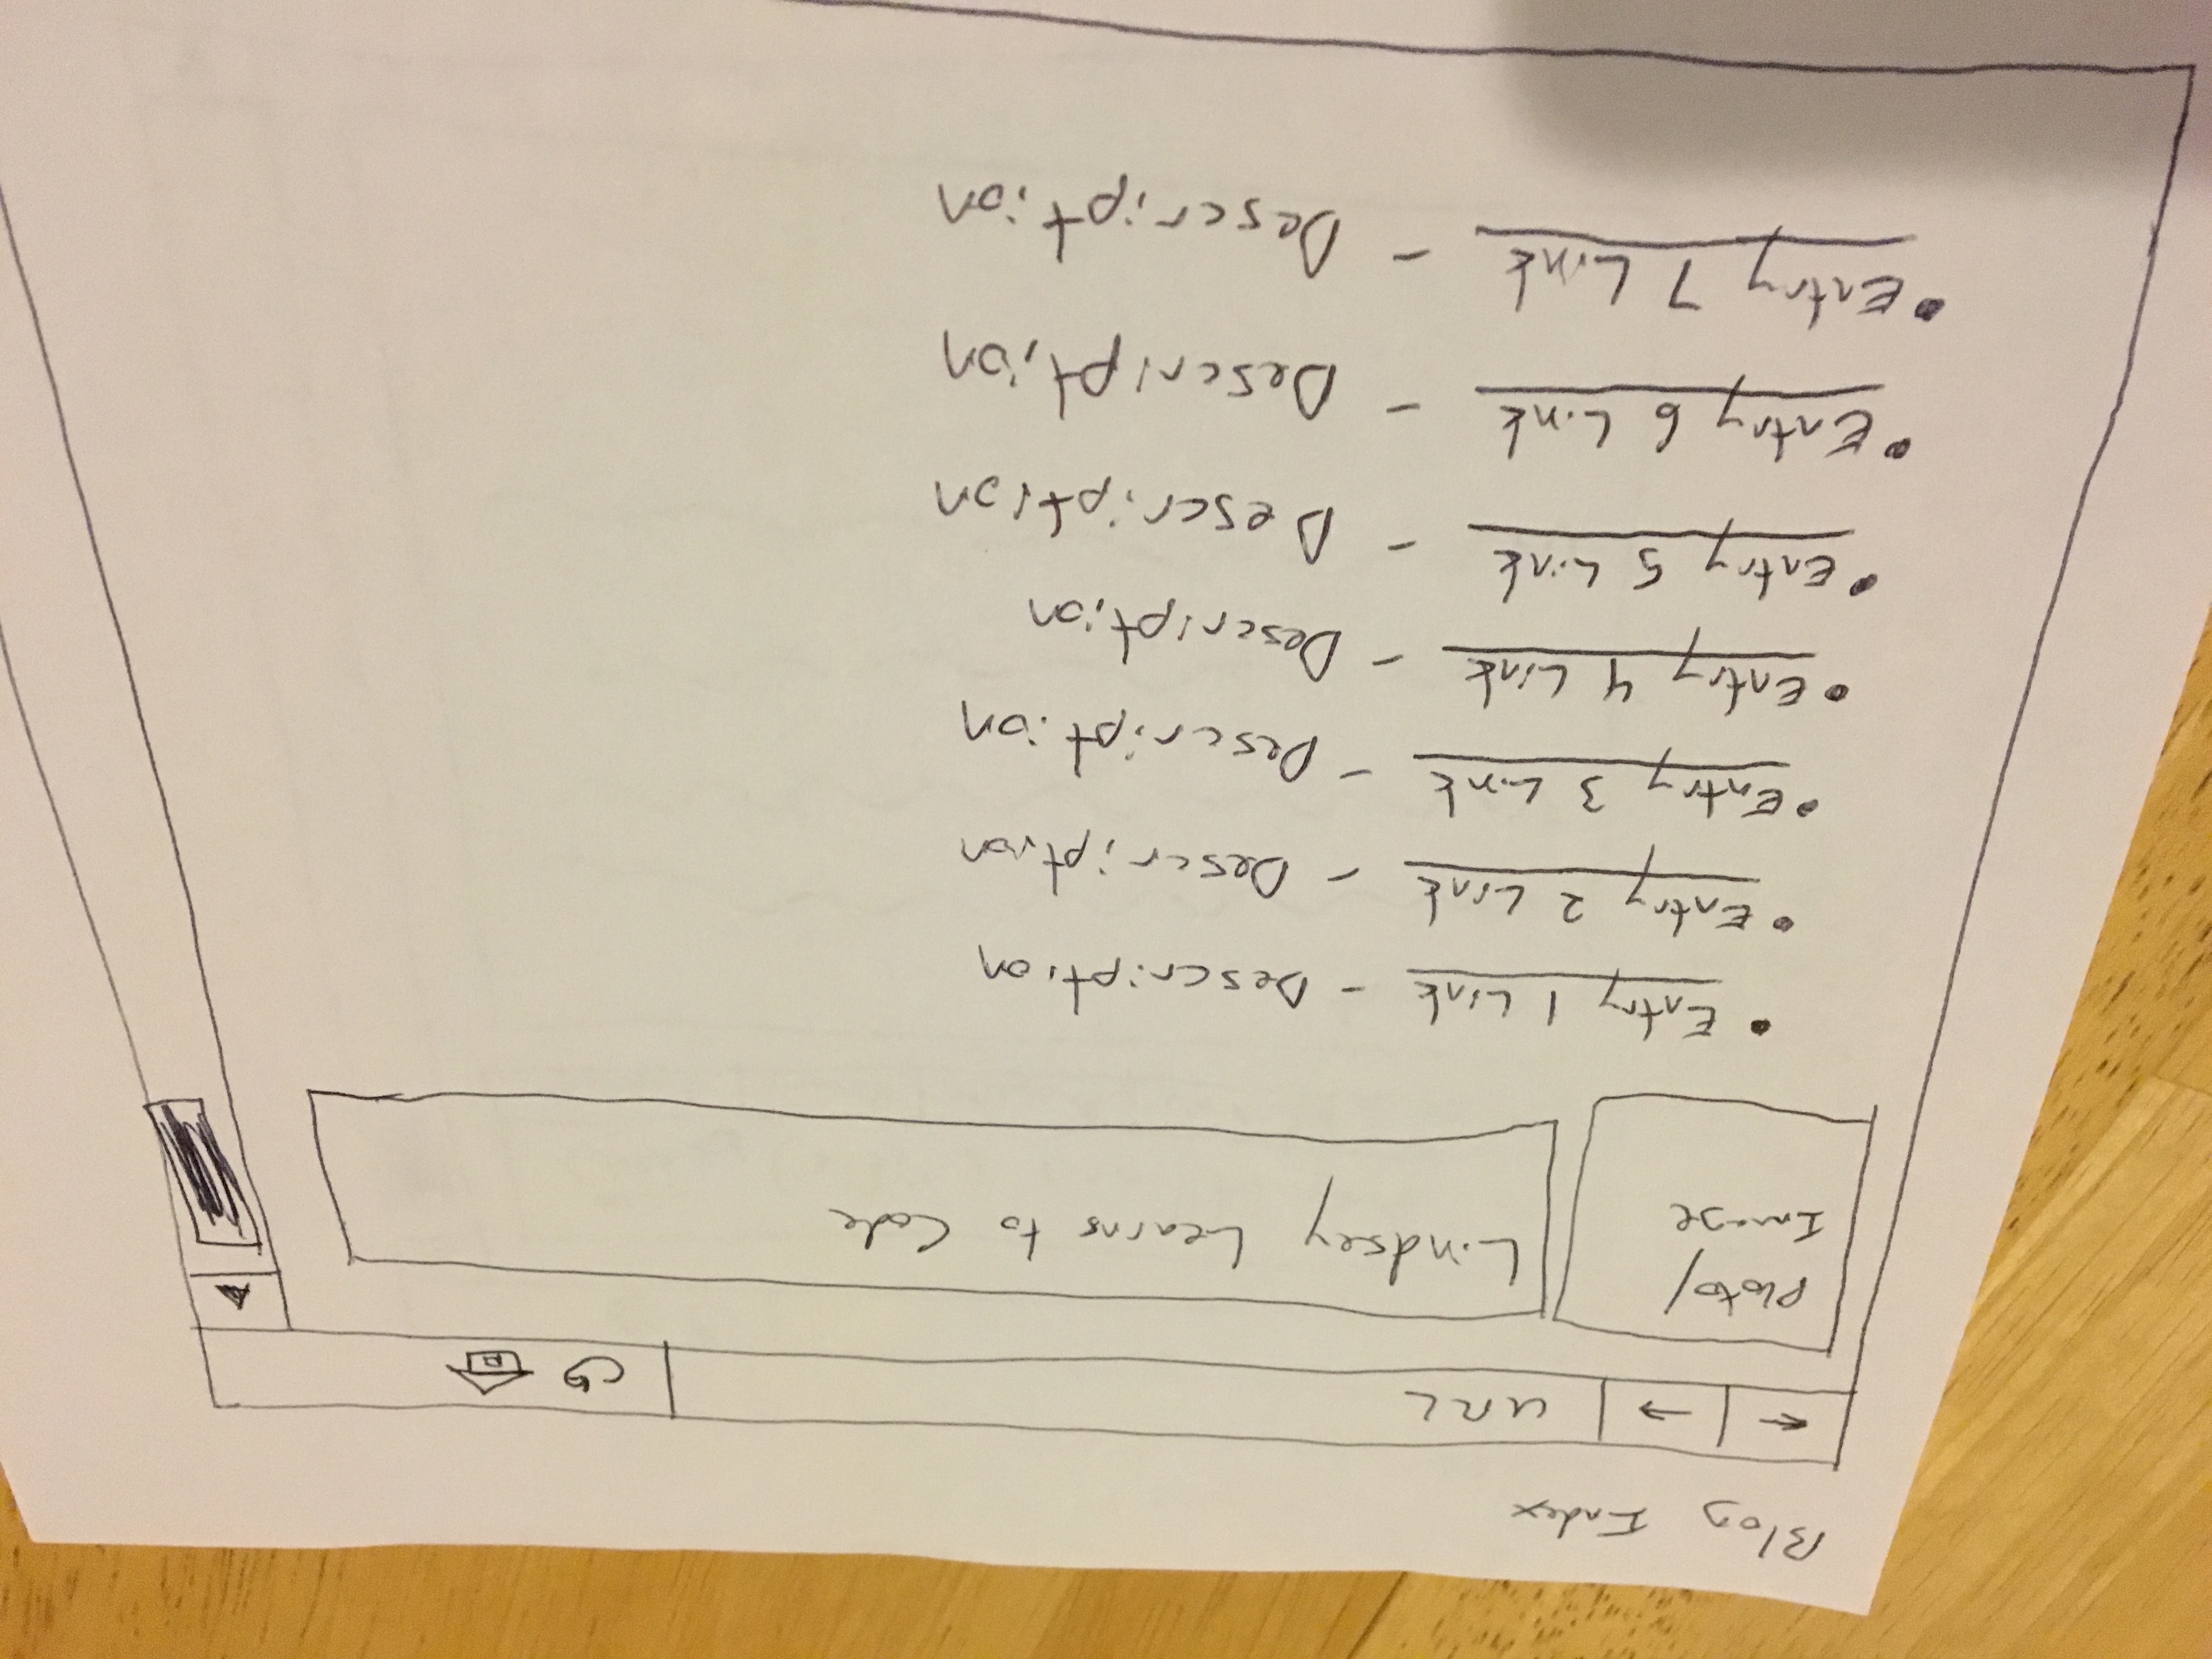 Blog Index
URL
Photo/
Image
Lindsey Learns to Code
• Entry 1 Link - Description
• Entry 2 Link - Description
• Entry 3 Link - Description
• Entry 4 Link - Description
• Entry 5 Link - Description
• Entry 6 Link - Description
• Entry 7 Link - Description